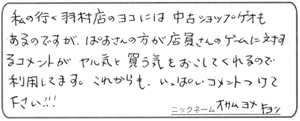 私の行く羽村店のヨコには中古ショップゲオも
あるのですが、ぱおさんの方が店員さんのゲームに対す
るコメントがヤル気と買う気をおこしてくれるので
利用してます。これからも、いっぱいコメントつけて
下さい!!!
ニックネーム オサムヨメ キヨシ